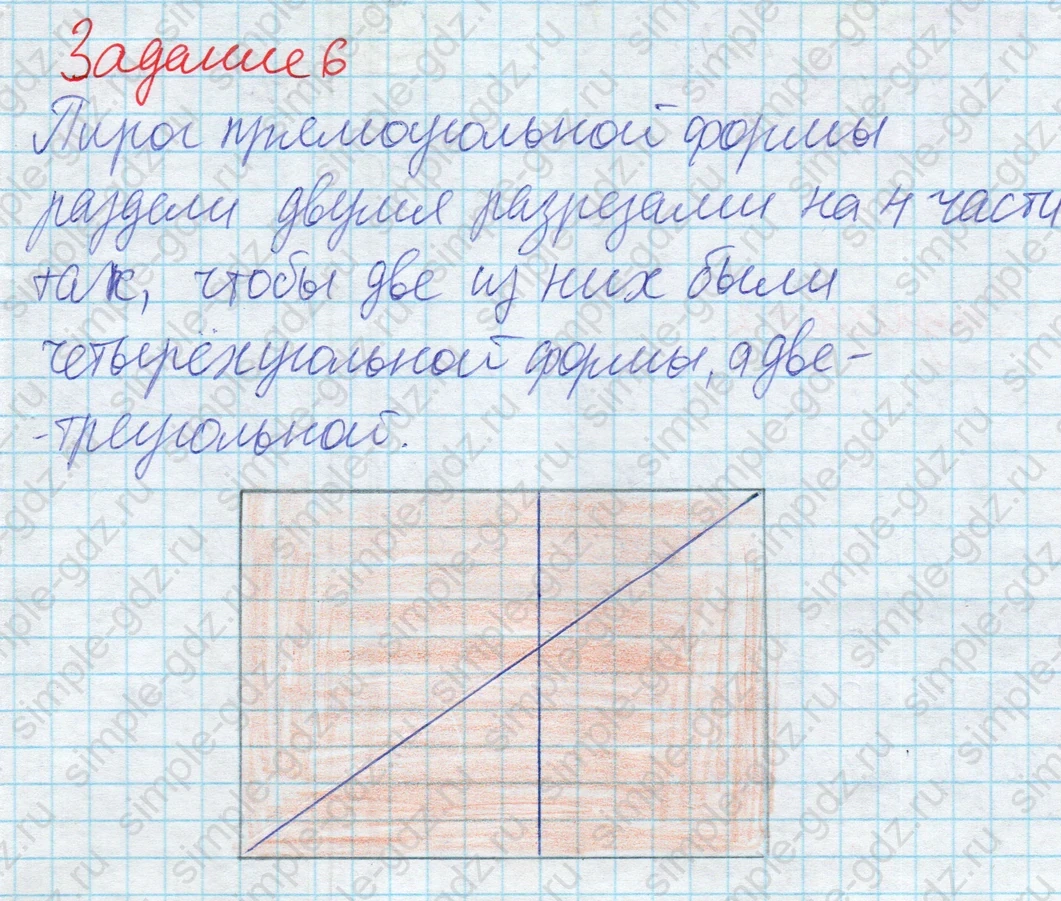 Задание 6
Пирог прямоугольной формы
раздели двумя разрезами на 4 части
так, чтобы две из них были
четырёхугольной формы, а две -
-треугольной.
simple-gdz.ru